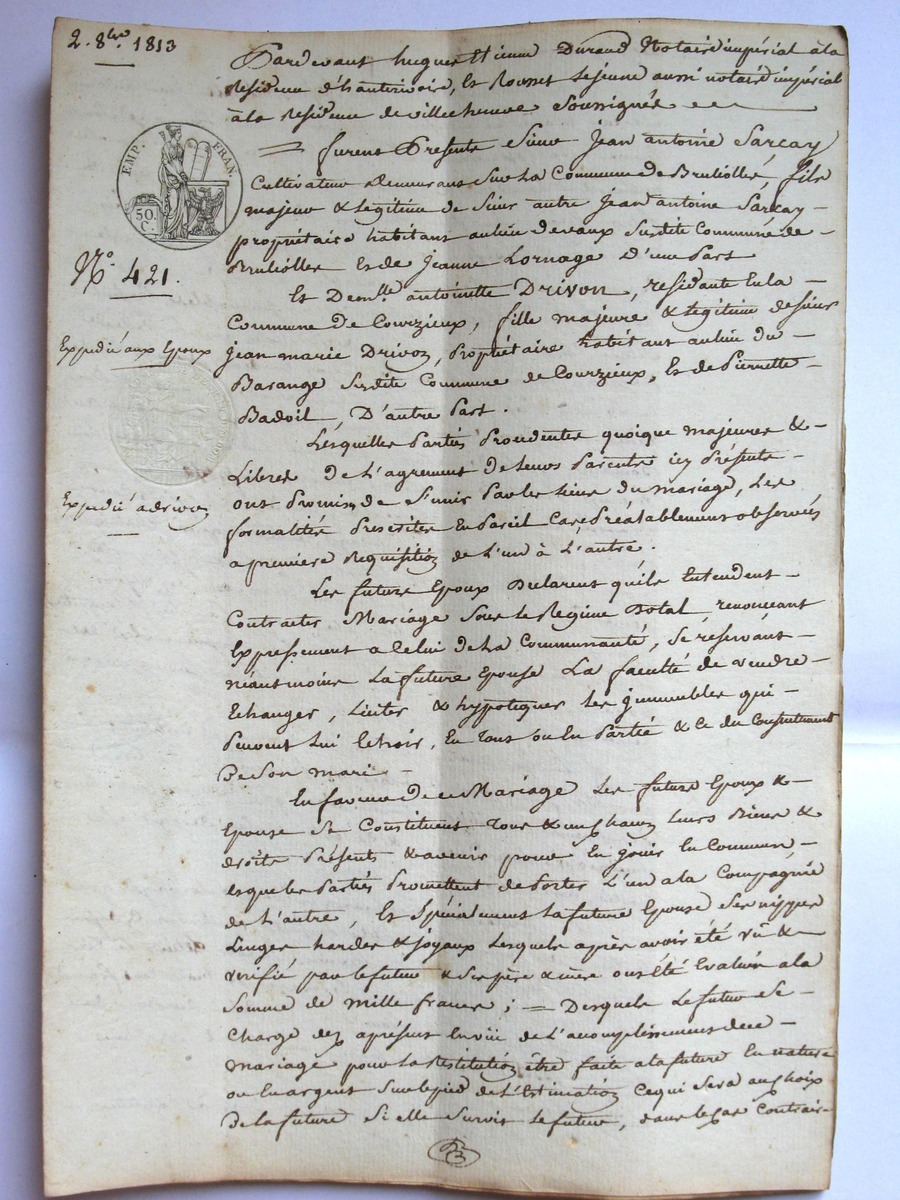 2. 8bre 1813
Pardevant hugues Etienne Durand Notaire impérial à la
Residence d'hauterivoire, Et Rounet lejeune aussi notaire impérial
à la Residence de villecheneve Soussignés
EMP. FRAN.
50. C.
= furent Presents Sieur Jean antoine Sarcay
Cultivateur Demeurant Sur La Commune de Brulliolles, fils
majeur & legitime de Sieur autre Jean antoine Sarcay
propriétaire habitant au lieu de vaux Susdite Commune de
Brulliolles Et de Jeanne Lornage d'une Part
No. 421.
Et Demlle antoinette DRIVON, residante En la
Commune de Courzieux, fille majeure & legitime de sieur
Expedié aux Epoux
Jean marie Drivon, Propriétaire habitant au lieu du
Barange Susdite Commune de Courzieux, Et de Pierrette
Badoil, D'autre Part.
Lesquelles Parties Procedentes quoique majeures &
Libres de L'agrement de leurs Parents icy Présents
Expedié a drivon
ont Promis de S'unir Par les liens du mariage, Les
formalités Prescrites En Pareil Cas Préalablement observées
a premiere Requisition de L'un à L'autre.
Les futurs Epoux Declarent qu'ils Entendent
Contracter Mariage Sous le Regime Dotal, renonceant
Expressement a Celui de La Communauté, Se réservant
néantmoins La future Epouse La faculté de vendre
Echanger, Liciter & hypotequer Les jmmeubles qui
Peuvent Lui Echoir, En Tous ou En Partie & Ce du Consentement
De Son mari
En faveur de ce Mariage Les futurs Epoux &
Epouse Se Constituent Tous & un Chacun Leurs Biens &
droits Présents & avenir pour En jouir En Commun,
esquels Parties Promettent de Porter L'un a la Compagnie
de L'autre, Et Spécialement La future Epouse Ses nippes
Linges hardes & joyaux Lesquels après avoir été vû &
verifié par le futur & Ses père & mère ont été Evalués a la
Somme de mille francs; = Desquels Le futur Se
Charge dez aprésent En vüe de L'accomplissement de ce
mariage pour La Restitution être faite a la future En nature
ou En argent Sur le pied de L'Estimation Ce qui Sera au Choix
de la future Si elle Survit Le futur, dans le Cas Contrair